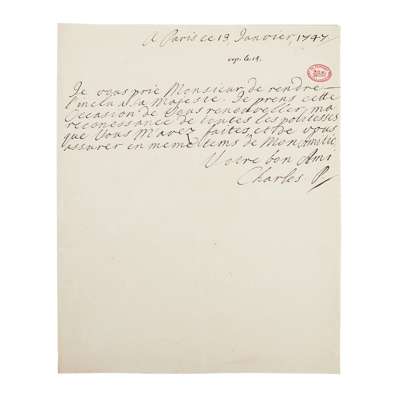 A Paris ce 13 Janvier, 1747
reçu le 19.
Je vous prie Monsieur, de rendre
l'inclu a sa Majesté. Je prens cette
occasion de vous renouveller, ma
reconessance de toutes les politesses
que vous M'avez faites, et de vous
assurer en meme tems de Mon Amitié.
Votre bon Ami
Charles P.